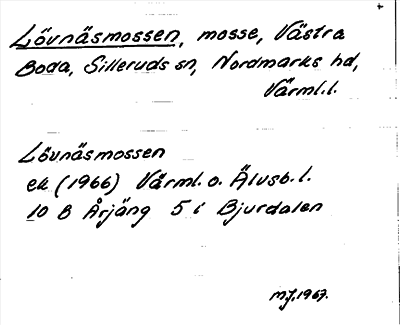 Lövnäsmossen, mosse, Västra
Boda, Silleruds sn, Nordmarks hd,
Värml.l.
Lövnäsmossen
ek (1966) Värml. o. Älvsb. l.
10 B Årjäng 5 i Bjurdalen
MJ.1967.